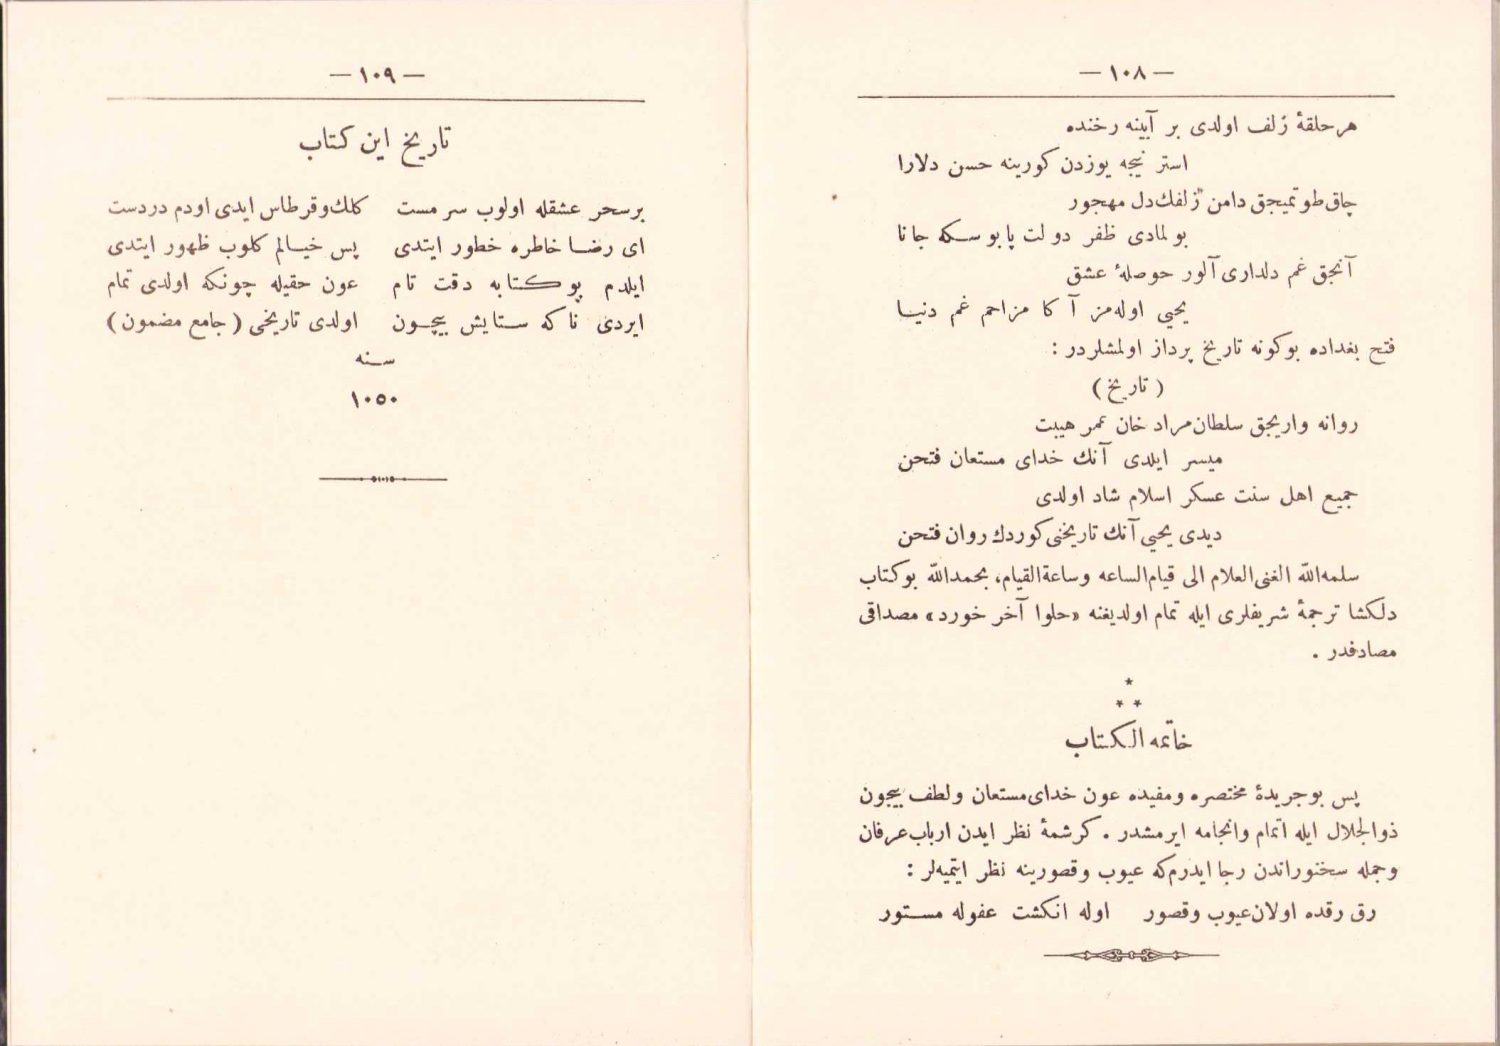 — ١٠٨ —
هر حلقهٔ زلف اولدی بر آیینه رخنده
استر نیجه یوزدن کورینه حسن دلارا
چاق طوتمیجق دامن زلفك دل مهجور
بولمادی ظفر دولت پابوسکه جانا
آنجق غم دلداری آلور حوصلهٔ عشق
یحیی اوله‌مز آ کا مزاحم غم دنیا
فتح بغداده بوکونه تاریخ پرداز اولمشلردر :
( تاریخ )
روانه واریجق سلطان مراد خان عمر هیبت
میسر ایلدی آنك خدای مستعان فتحن
جمیع اهل سنت عسکر اسلام شاد اولدی
دیدی یحیی آنك تاریخنی کوردك روان فتحن
سلمه‌الله الغنی‌العلام الی قیام‌الساعه وساعةالقیام، بحمدالله بوکتاب
دلکشا ترجمهٔ شریفلری ایله تمام اولدیغنه «حلوا آخر خورد» مصداقی
مصادفدر .
*
* *
خاتمه الکتاب
پس بو جریدهٔ مختصره ومفیده عون خدای مستعان ولطف بیچون
ذوالجلال ایله اتمام وانجامه ایرمشدر . کرشمهٔ نظر ایدن ارباب عرفان
وجمله سخنوراندن رجا ایدرم‌که عیوب وقصورینه نظر ایتمیه‌لر :
رق رقده اولان عیوب وقصور اوله انکشت عفوله مستور
— ١٠٩ —
تاریخ این کتاب
برسحر عشقله اولوب سرمست کلك وقرطاس ایدی اودم دردست
ای رضا خاطره خطور ایتدی پس خیالم کلوب ظهور ایتدی
ایلدم بو کتابه دقت تام عون حقیله چونکه اولدی تمام
ایردی ناکه ستایش بیچون اولدی تاریخی ( جامع مضمون )
سنه
١٠٥٠